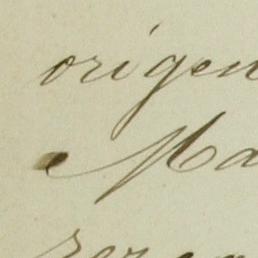 origen
Ma